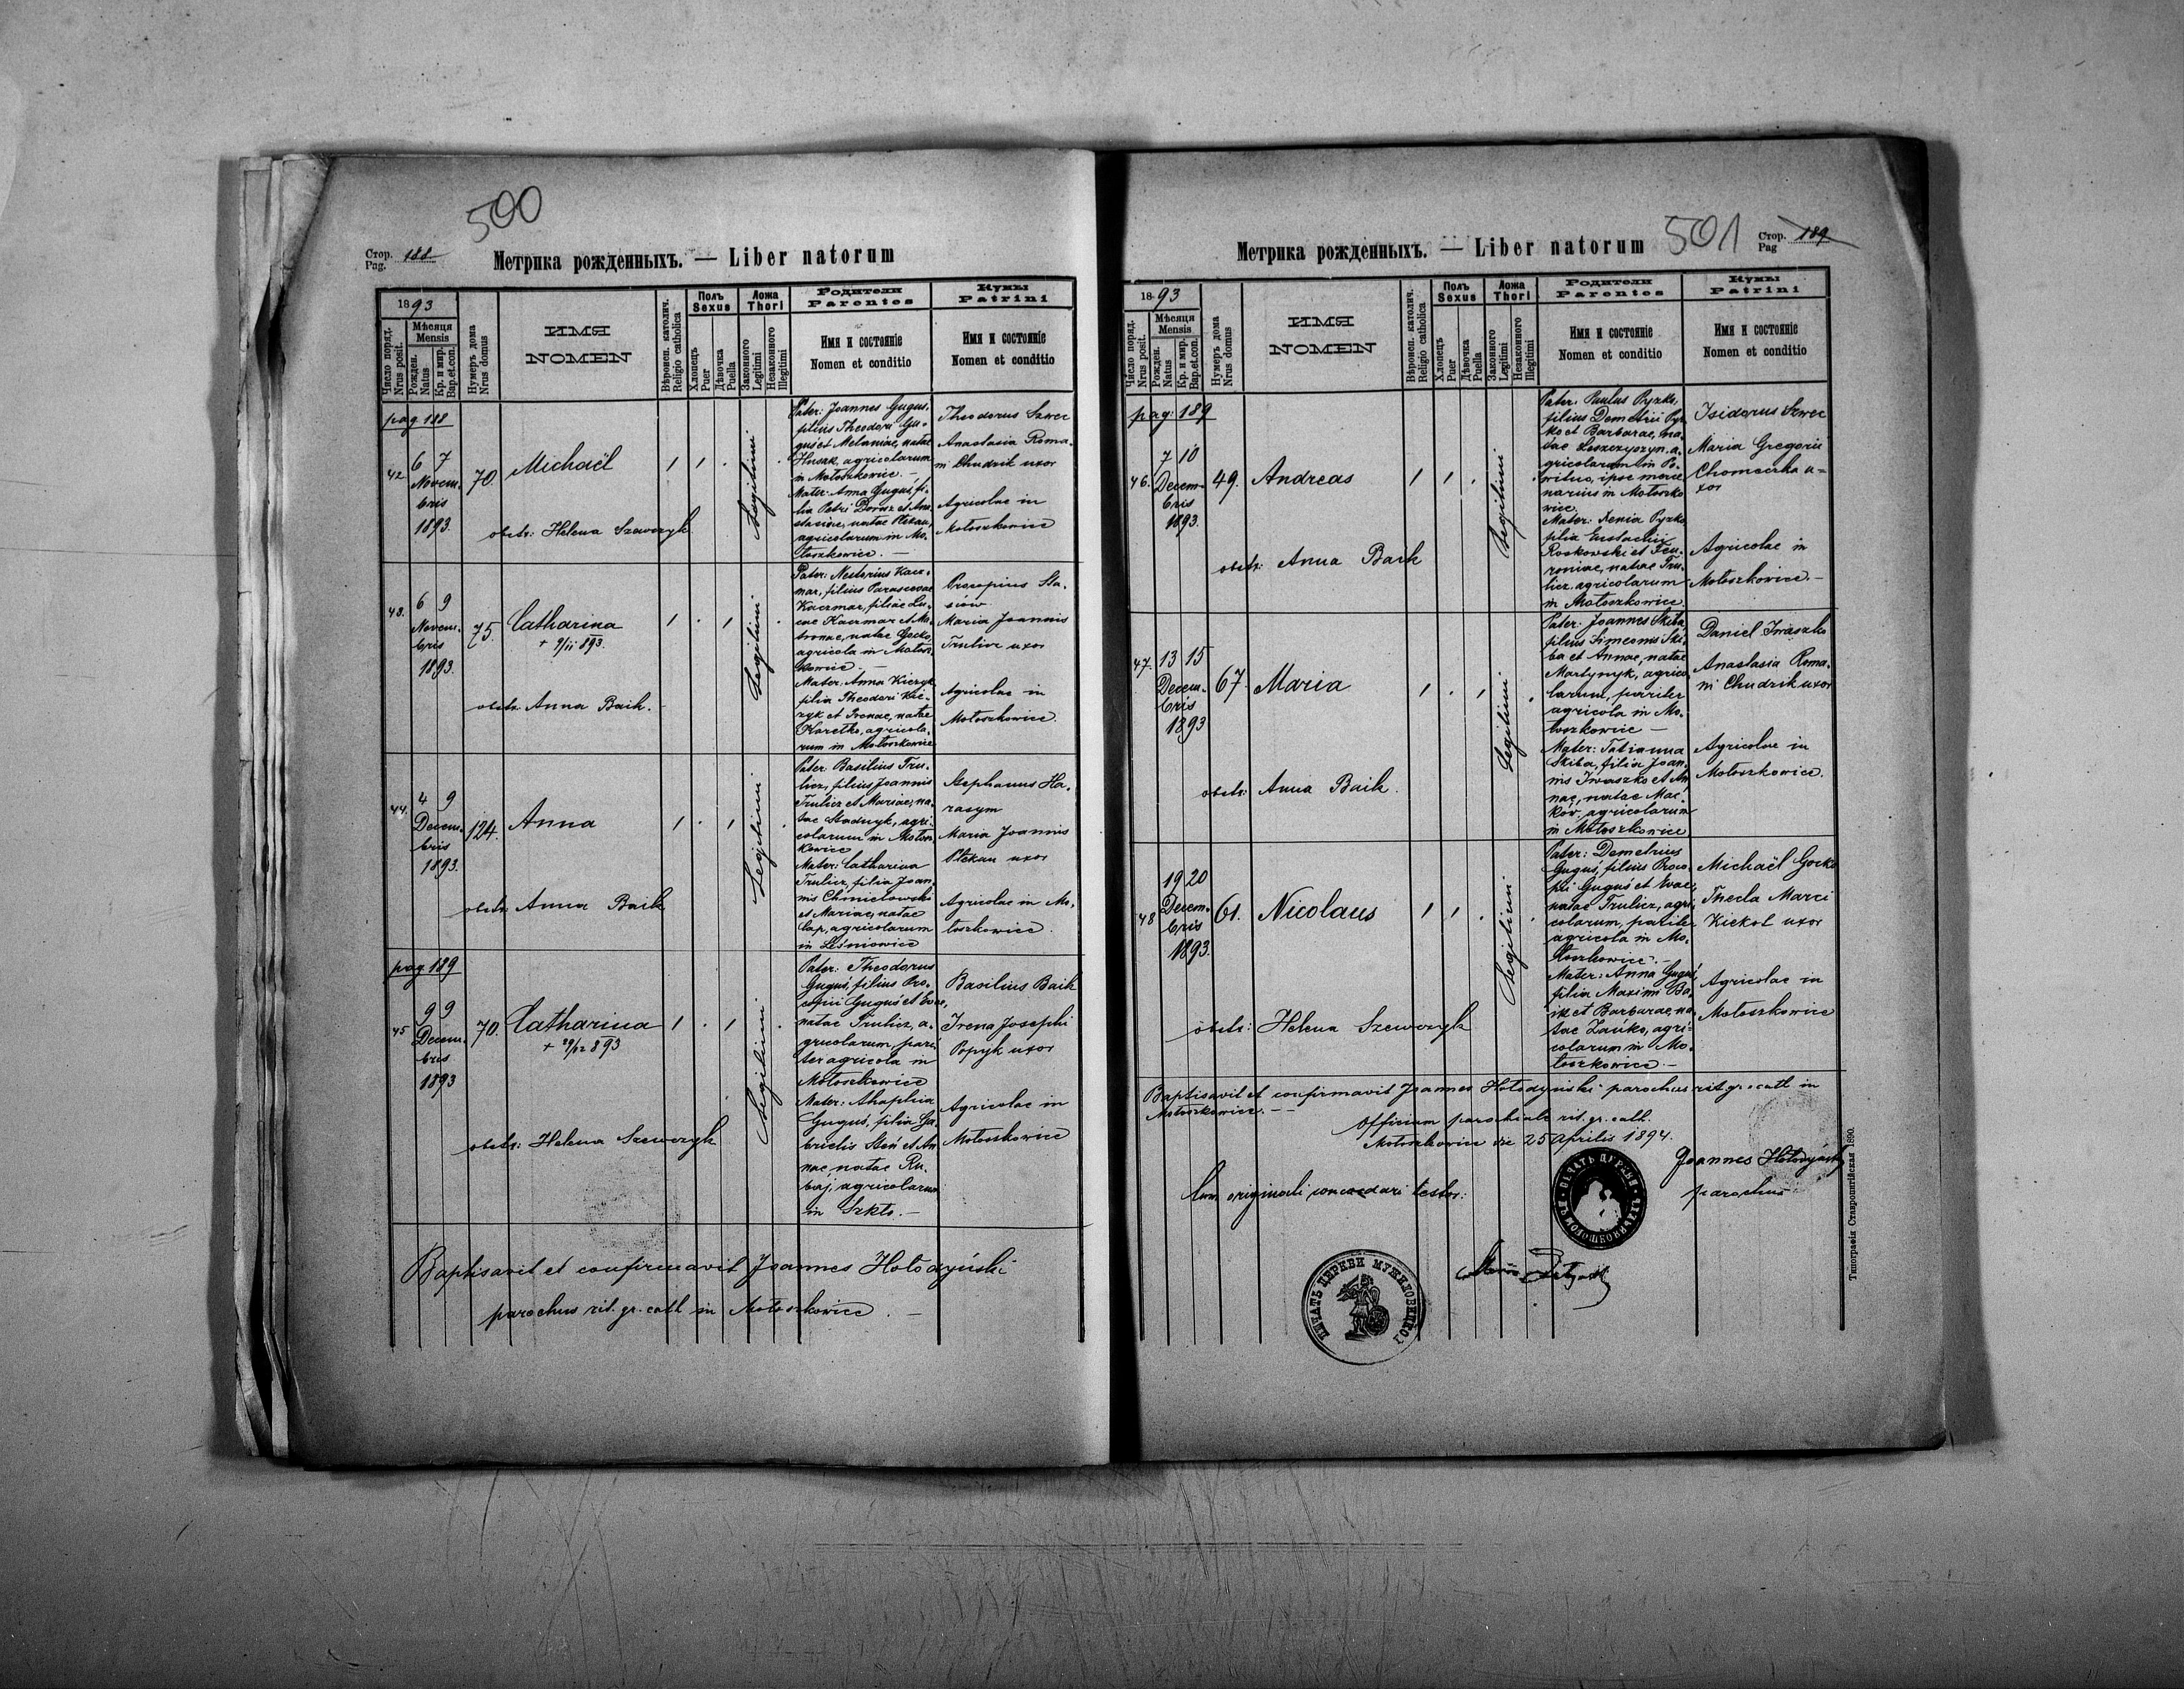 500
Стор. 188
Pag.
Метрика рожденныхъ. — Liber natorum
1893
Число поряд.
Nrus posit.
Мѣсяця
Mensis
Рожден.
Natus
Кр. и мир.
Bap.et.con.
Нумеръ дома
Nrus domus
ИМЯ
NOMEN
Вѣроисп. католич.
Religio catholica
Полъ
Sexus
Хлопецъ
Puer
Дѣвочка
Puella
Ложа
Thori
Законного
Legitimi
Незаконного
Illegitimi
Родители
Parentes
Имя и состояніе
Nomen et conditio
Кумы
Patrini
Имя и состояніе
Nomen et conditio
pag 188
42
6 7
Novem-
bris
1893.
70.
Michaël
obstr: Helena Szewczyk
Legitimi
Pater: Joannes Guguś,
filius Theodori Gu-
guś et Melaniae, natae
Husak, agricolarum
in Mołoszkowice. —
Mater: Anna Guguś, fi-
lia Petri Dorosz et Ana-
stasiae, natae Plekan,
agricolarum in Mo-
łoszkowice. —
Theodorus Szwec
Anastasia Roma-
ni Chudzik uxor
Agricolae in
Mołoszkowice
43.
6 9
Novem-
bris
1893.
75.
Catharina
+ 9/11 893.
obstr. Anna Baik.
Legitimi
Pater: Nestorius Kacz-
mar, filius Parascevae
Kaczmar, filiae Lu-
cae Kaczmar et Ma-
tronae, natae Gocko,
agricola in Mołosz-
kowice. —
Mater: Anna Kiczyk
filia Theodori Kic-
zyk et Irenae, natae
Koretko, agricola-
rum in Mołoszkowice
Procopius Sta-
siów.
Maria Joannis
Trulicz uxor
Agricolae in
Mołoszkowice.
44.
4 9
Decem-
bris
1893.
124.
Anna
obstr. Anna Baik
Legitimi
Pater: Basilius Tru-
licz, filius Joannis
Trulicz et Mariae, na-
tae Stadnyk, agri-
colarum in Mołosz-
kowice
Mater: Catharina
Trulicz, filia Joan-
nis Chmielowski
et Mariae, natae
Cap, agricolarum
in Leśniowice
Stephanus Ha-
rasym
Maria Joannis
Plekan uxor
Agricolae in Mo-
łoszkowice.
pag 189
45
9 9
Decem-
bris
1893
70.
Catharina
+ 29/12 893
obstr: Helena Szewczyk
Legitimi
Pater: Theodorus
Guguś, filius Pro-
copii Guguś et Evae,
natae Trulicz, a-
gricolarum, pari-
ter agricola in
Mołoszkowice
Mater: Ahaphia
Guguś, filia Ga-
brielis Steń et An-
nae, natae Ru-
baj, agricolarum
in Szkło. —
Basilius Baik
Irena Josephi
Popyk uxor
Agricolae in
Mołoszkowice
Baptisavit et confirmavit Joannes Hołodyński
parochus rit. gr. cath in Mołoszkowice. —
501
Стор. 189
Pag
Метрика рожденныхъ. — Liber natorum
1893
Число поряд.
Nrus posit.
Мѣсяця
Mensis
Рожден.
Natus
Кр. и мир.
Bap.et.con.
Нумеръ дома
Nrus domus
ИМЯ
NOMEN
Вѣроисп. католич.
Religio catholica
Полъ
Sexus
Хлопецъ
Puer
Дѣвочка
Puella
Ложа
Thori
Законного
Legitimi
Незаконного
Illegitimi
Родители
Parentes
Имя и состояніе
Nomen et conditio
Кумы
Patrini
Имя и состояніе
Nomen et conditio
pag: 189
46.
7 10
Decem-
bris
1893.
49.
Andreas
obstr: Anna Baik
Legitimi
Pater: Paulus Pyzko,
filius Demetrii Pyz-
ko et Barbarae, na-
tae Leszczyszyn, a-
gricolarum in Po-
witno, ipse merce-
narius in Mołoszko-
wice.
Mater: Xenia Pyzko
filia Eustachii
Roskowski et Feu-
roniae, natae Tru-
licz, agricolarum
in Mołoszkowice.
Isidorus Szwec
Maria Gregorii
Chomeczka u-
xor
Agricolae in
Mołoszkowice. —
47.
13 15
Decem-
bris
1893
67.
Maria
obstr: Anna Baik.
Legitimi
Pater: Joannes Skiba,
filius Simeonis Ski-
ba et Annae, natae
Martynyk, agrico-
larum, pariter
agricola in Mo-
łoszkowice —
Mater: Tatianna
Skiba, filia Joan-
nis Iwaszko et An-
nae, natae Mac-
ków, agricolarum
in Mołoszkowice
Daniel Iwaszko
Anastasia Roma-
ni Chudzik uxor
Agricolae in
Mołoszkowice.
48
19 20
Decem-
bris
1893.
61.
Nicolaus
obstr: Helena Szewczyk
Legitimi
Pater: Demetrius
Guguś, filius Proco-
pii Guguś et Evae,
natae Trulicz, agri-
colarum, pariter
agricola in Mo-
łoszkowice. —
Mater: Anna Guguś,
filia Maximi Ba-
ik et Barbarae, na-
tae Zańko, agri-
colarum in Mo-
łoszkowice. —
Michaël Gocko
Thecla Marci
Kickol uxor
Agricolae in
Mołoszkowice
Baptisavit et confirmavit Joannes Hołodyński parochus rit. gr. cath in
Mołoszkowice. — —
Officium parochiale rit. gr. cath.
Mołoszkowice die 25 Aprilis 1894.
Joannes Hołodyński
parochus
Cum originali concordari testor:
Типографія Ставропигійская 1890.